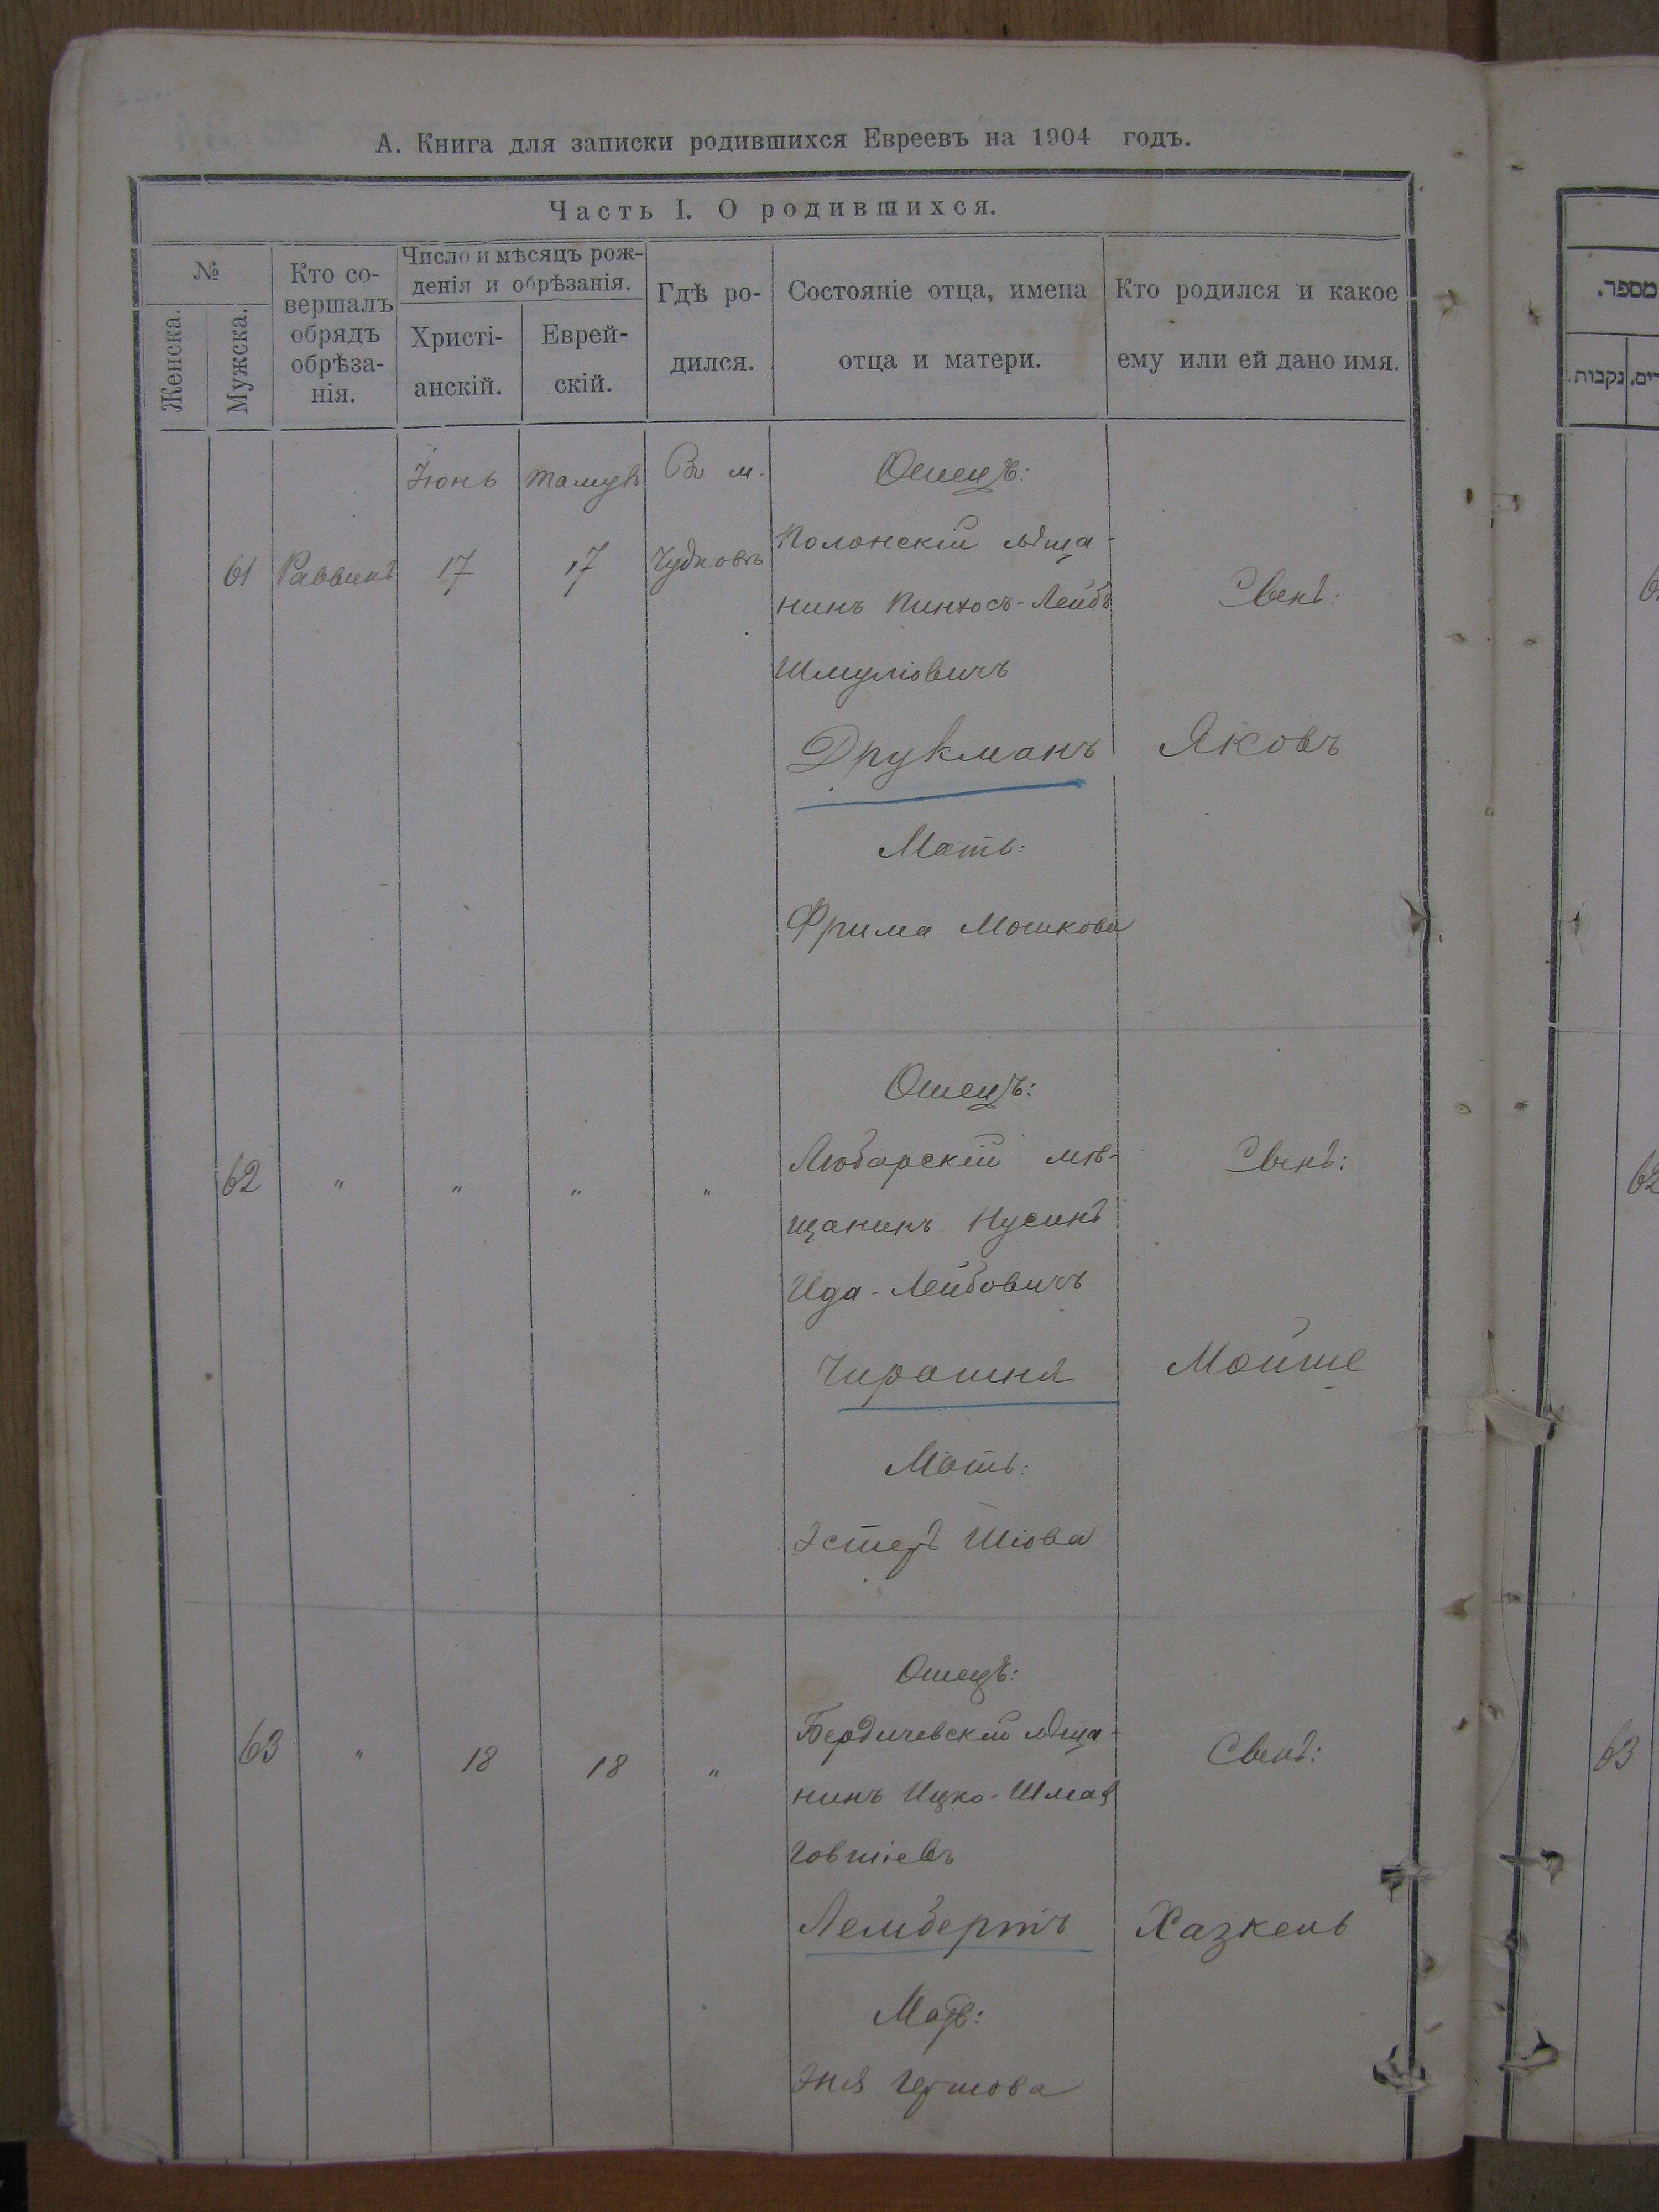 А. Книга для записки родившихся Евреевъ на 1904 годъ.
Часть I. О родившихся.
№
Женска.
Мужска.
Кто со-
вершалъ
обрядъ
обрѣза-
нія.
Число и мѣсяцъ рож-
денія и обрѣзанія.
Христі-
анскій.
Еврей-
скій.
Гдѣ ро-
дился.
Состояніе отца, имена
отца и матери.
Кто родился и какое
ему или ей дано имя.
61
Раввинъ
Іюнь
17
Тамузъ
17
Въ м.
Чудновъ
Отецъ:
Полонскій мѣща-
нинъ Пинхосъ-Лейбъ
Шмуліовичъ
Друкманъ
Мать:
Фрима Мошкова
Сынъ:
Яковъ
62
"
"
"
"
Отецъ:
Любарскій мѣ-
щанинъ Нусинъ
Ида-Лейбовичъ
Чирашня
Мать:
Эстеръ Шіова
Сынъ:
Мойше
63
"
18
18
"
Отецъ:
Бердичевскій мѣща-
нинъ Ицко-Шмая
Говшіевъ
Лембертъ
Мать:
Эня Гершова
Сынъ:
Хазкель
מספר.
נקבות.
62
63